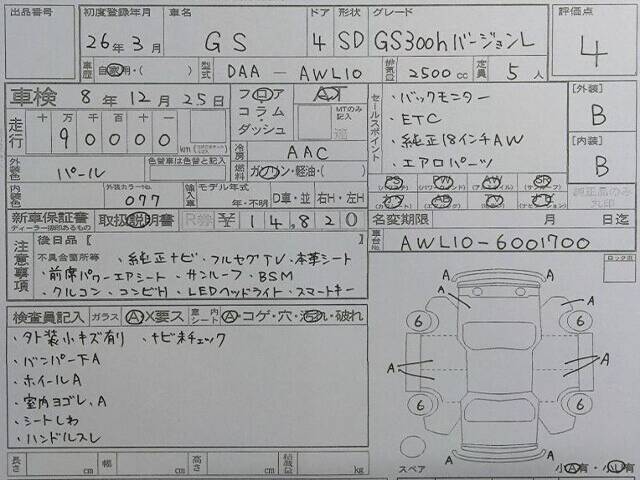 出品番号 初度登録年月 車名 ドア 形状 グレード 評価点
26年 3月 GS 4 SD GS300h バージョンL 4
車歴 自家用・( ) 型式 DAA - AWL10 排気量 2500 cc 定員 5 人
車検 8年 12月 25日 フロア AT セールスポイント ・バックモニター [外装]
走行 十万 万 千 百 十 一 コラム MTのみ記入 ・ETC B
9 0 0 0 0 km ダッシュ 速 ・純正18インチAW [内装]
外装色 パール 色替車は色替と記入 冷房 AAC ・エアロパーツ B
燃料 ガソリン・軽油・( )
内装色 外装カラーNo. 077 輸入車 モデル年式 年・不明 D車・並 右H・左H 純正品のみ丸印
新車保証書 取扱説明書 R券 ¥ 14,820 名変期限 月 日迄
ディーラー捺印あるもの 車台No. AWL10-6001700
注意事項 後日品 [
不具合箇所等 ・純正ナビ・フルセグTV・本革シート
・前席パワーエアシート ・サンルーフ・BSM
・クルコン ・コンビH ・LEDヘッドライト ・スマートキー
検査員記入 ガラス A・X要ス 室内 シート A・コゲ・穴・汚れ・破れ
・外装小キズ有り ・ナビ未チェック
・バンパー下A
・ホイールA
・室内ヨゴレ、A
・シートしわ
・ハンドルスレ
A A A
6 6
A A
6 6
A A
スペア 小A有・小U有
長さ cm 幅 cm 高さ cm 積載量 kg